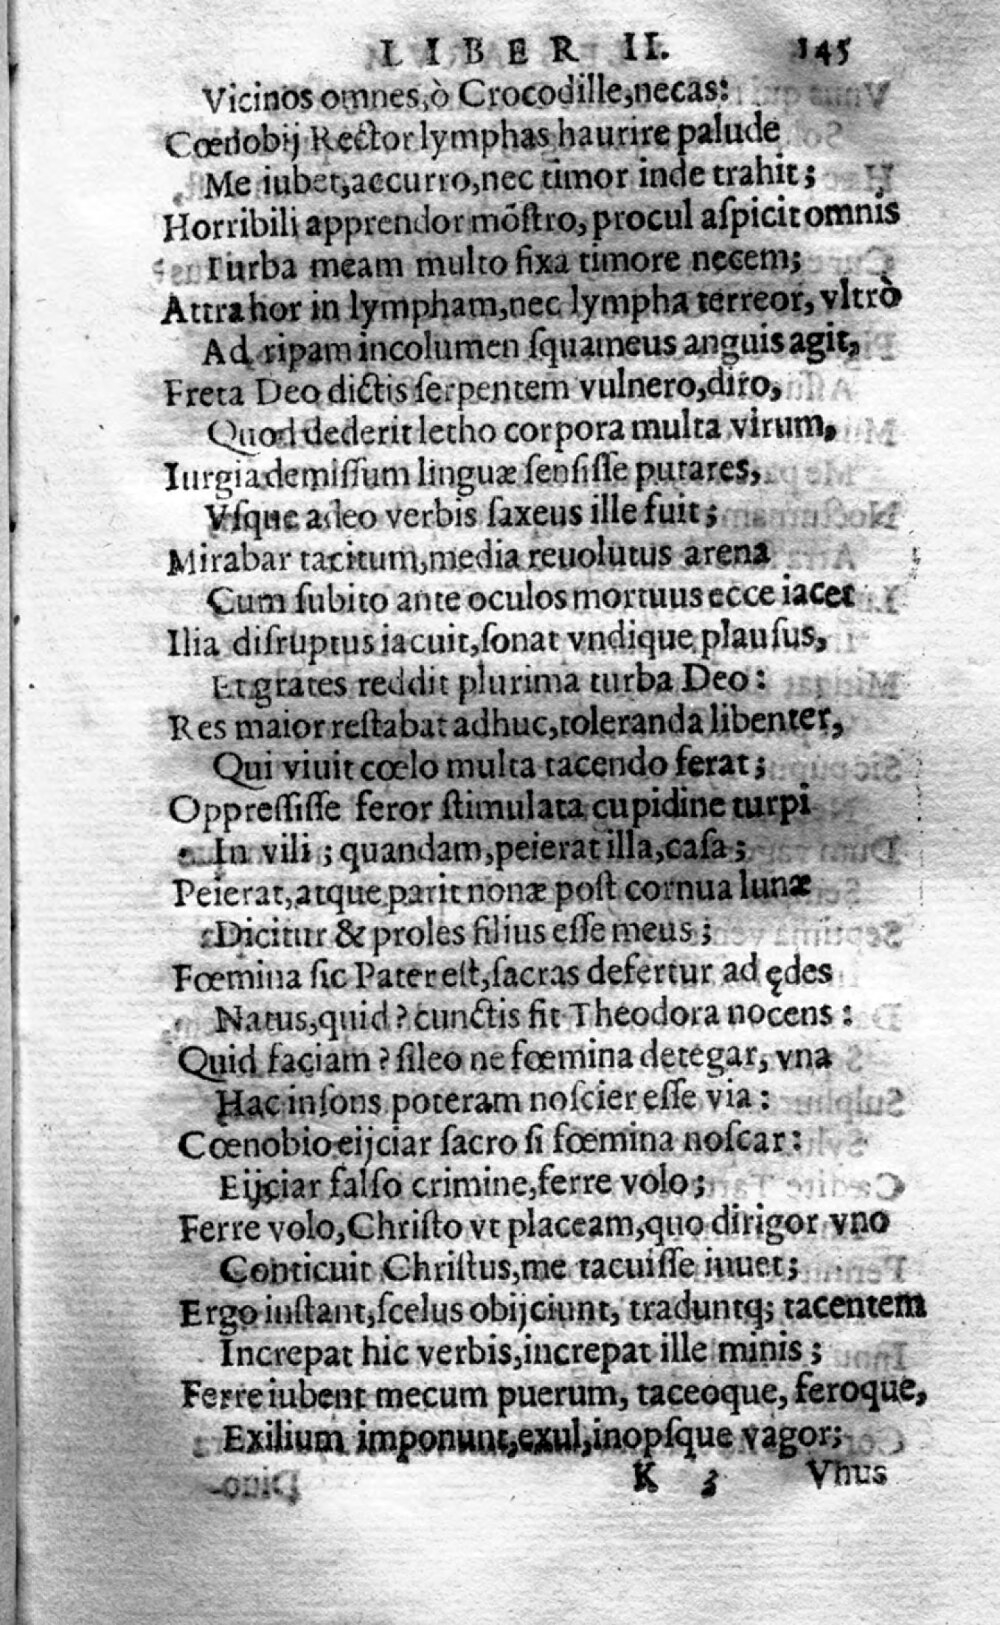 LIBER II. 145
Vicinos omnes, ò Crocodille, necas:
Cœnobij Rector lymphas haurire palude
Me iubet, accurro, nec timor inde trahit;
Horribili apprendor mõſtro, procul aſpicit omnis
Turba meam multo fixa timore necem;
Attrahor in lympham, nec lympha terreor, vltrò
Ad ripam incolumen ſquameus anguis agit,
Freta Deo dictis ſerpentem vulnero, diro,
Quod dederit letho corpora multa virum,
Iurgia demiſſum linguæ ſenſiſſe putares,
Vſque adeo verbis ſaxeus ille fuit;
Mirabar tacitum, media reuolutus arena
Cum ſubito ante oculos mortuus ecce iacet
Ilia diſruptus iacuit, ſonat vndique plauſus,
Et grates reddit plurima turba Deo:
Res maior reſtabat adhuc, toleranda libenter,
Qui viuit cœlo multa tacendo ferat;
Oppreſſiſſe feror ſtimulata cupidine turpi
In vili; quandam, peierat illa, caſa;
Peierat, atque parit nonæ poſt cornua lunæ
Dicitur & proles filius eſſe meus;
Fœmina ſic Pater eſt, ſacras defertur ad ędes
Natus, quid? cunctis fit Theodora nocens:
Quid faciam? ſileo ne fœmina detegar, vna
Hac inſons poteram noſcier eſſe via:
Cœnobio eijciar ſacro ſi fœmina noſcar:
Eijciar falſo crimine, ferre volo;
Ferre volo, Chriſto vt placeam, quo dirigor vno
Conticuit Chriſtus, me tacuiſſe iuuet;
Ergo inſtant, ſcelus obijciunt, traduntq; tacentem
Increpat hic verbis, increpat ille minis;
Ferre iubent mecum puerum, taceoque, feroque,
Exilium imponunt, exul, inopſque vagor;
K 3 Vnus